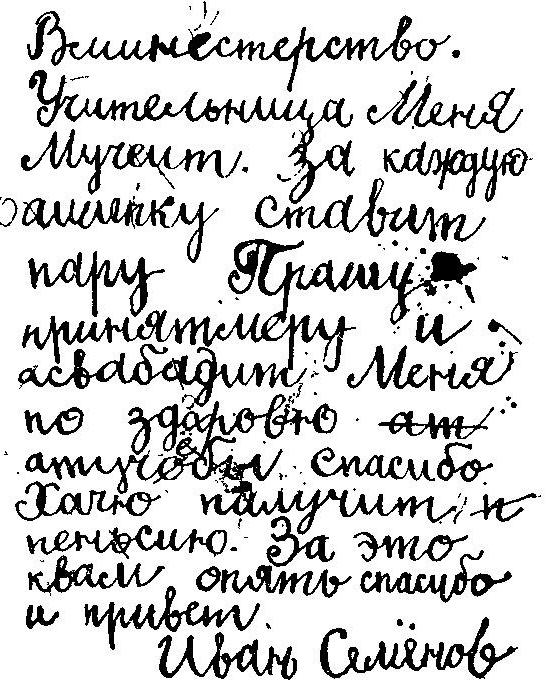 Вминестерство.
Учительница Меня
Мучеит. За каждую
ашипку ставит
пару Прашу
принятмеру и
асвабадит Меня
по здаровю ат
атучобы спасибо
Хачю палучит п
пеньсию. За это
квам опять спасибо
и привет.
Иванъ Семёнов